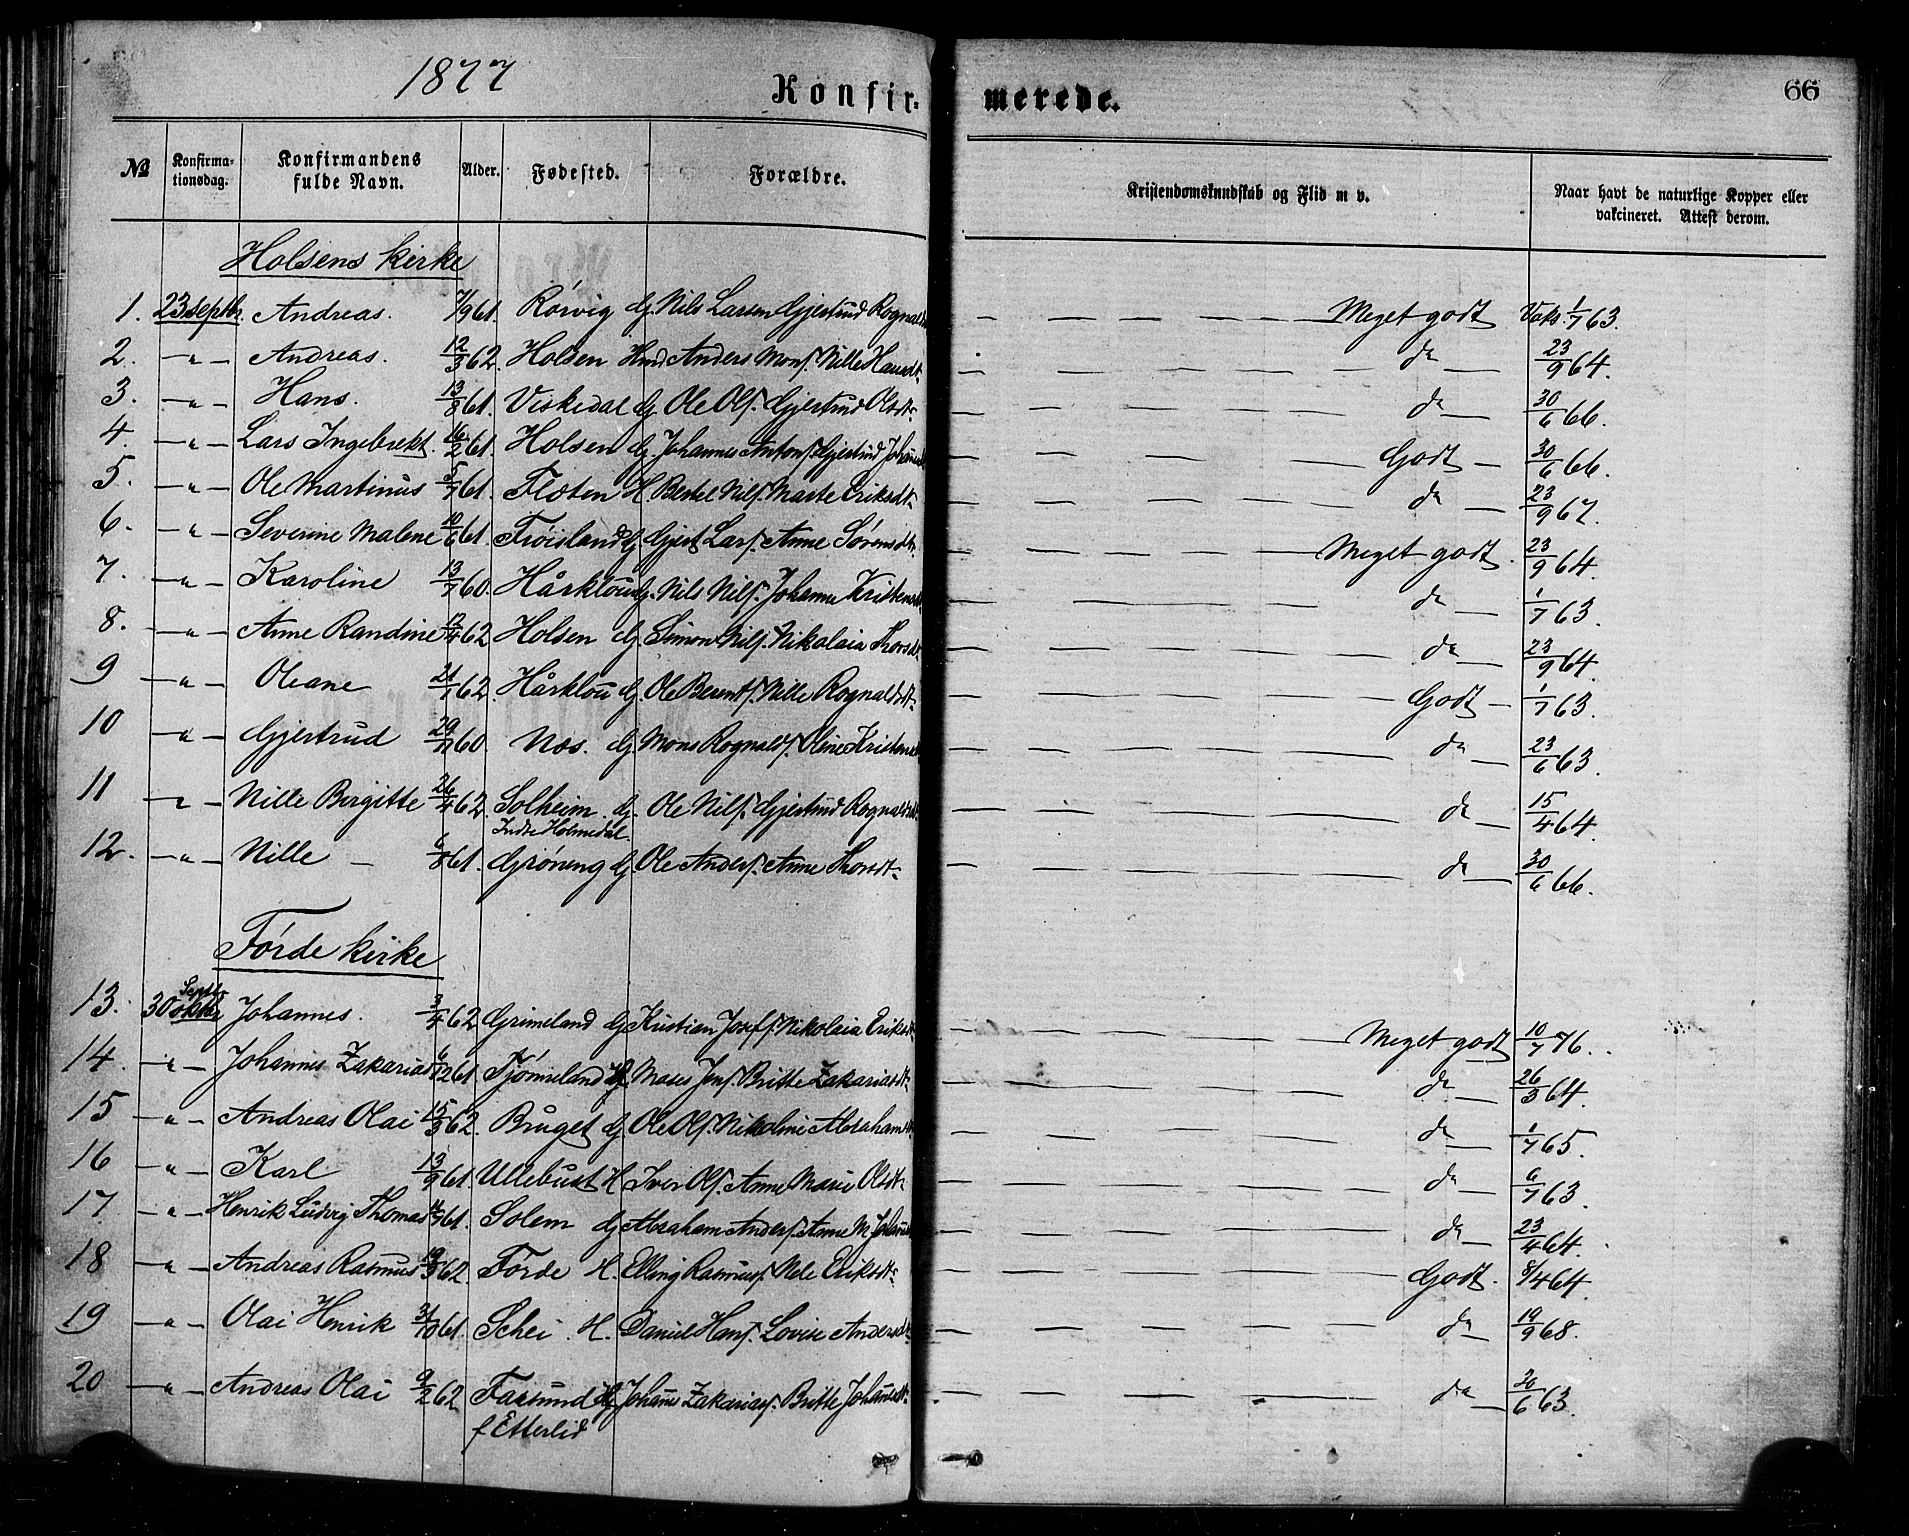 1877
Konfir- merede. 66
No Konfirma-tionsdag. Konfirmandens fulde Navn. Alder. Fødested. Forældre. Kristendomskundskab og Flid m v. Naar havt de naturlige Kopper eller vakcineret. Attest derom.
Holsens kirke
1. 23 Septbr. Andreas. 7/9 61. Rörvig Gj. Nils Larsen Gjertrud Rognaldsd Meget godt Vaks. 1/7 63.
2. — " — Andreas. 12/3 62. Holsen Hmd Anders Mons. Nille Hansdt. do 23/9 64.
3. — " — Hans. 13/8 61. Viskedal Gj Ole Ols. Gjertrud Olsdt. do 30/6 66.
4. — " — Lars Ingebrekt. 16/2 61. Holsen Gj. Johannes Antons. Gjertrud Johansd Godt 30/6 66.
5. — " — Ole Martinus 5/7 61. Floten H. Bertel Nils. Marte Eriksdt. do 23/9 67.
6. — " — Severine Malene 10/6 61. Fröisland Gj. Gjert Lars. Anne Sørensdtr. Meget godt. 23/9 64.
7. — " — Karoline 13/7 60. Hårklou Gj. Nils Nils. Johanne Kristensdt do 1/7 63.
8. — " — Anne Randine 12/4 62 Holsen Gj. Simon Nils. Nikolaia Thorsdt. do 23/9 64.
9 — " — Oleane 21/1 62. Hårklou Gj. Ole Berents. Nille Rognaldsdt. Godt 1/7 63.
10 — " — Gjertrud 29/11 60. Nes. Gj. Mons Rognalds. Oline Kristensd do 23/6 63.
11 — " — Nille Birgitte 26/4 62. Solheim. Gj. Ole Nils. Gjertrud Rognaldsdt. do 15/4 64.
Indre Holmedal
12. — " — Nille 6/8 61. Gröneng Gj. Ole Anders. Anne Thorsdt. do 30/6 66.
Förde kirke
Septbr.
13. 30 oktbr Johannes. 3/4 62 Grimeland Gj Kristian Josefs. Nikolaia Eriksdt. Meget godt 10/7 76.
14. — " — Johannes Zakarias 6/12 61. Tjönneland Gj. Moses Jens. Britte Zakariasdt. do 26/3 64.
15 — " — Andreas Olai 15/3 62. Bruget Gj. Ole Ols. Nikoline Abrahamsdt. do 1/7 65.
16 — " — Karl 13/9 61. Ullebust H. Iver Ols. Anne Marie Olsdt. do 6/7 63.
17 — " — Henrik Ludvig Thomas 61. Solem Gj Abraham Anders. Anne M. Johansd do 23/4 64.
18 — " — Andreas Rasmus 19/3 62. Förde H. Elling Rasmus. Nele Eriksdt. Godt. 8/4 64.
19 — " — Olai Henrik 31/10 61. Schei. H. Daniel Hans. Lovise Andersdt. do 19/9 68.
20 — " — Andreas Olai 9/2 62 Farsund Gj Johannes Zakarias. Britte Johannesdt. do 30/6 63.
f Etterlid